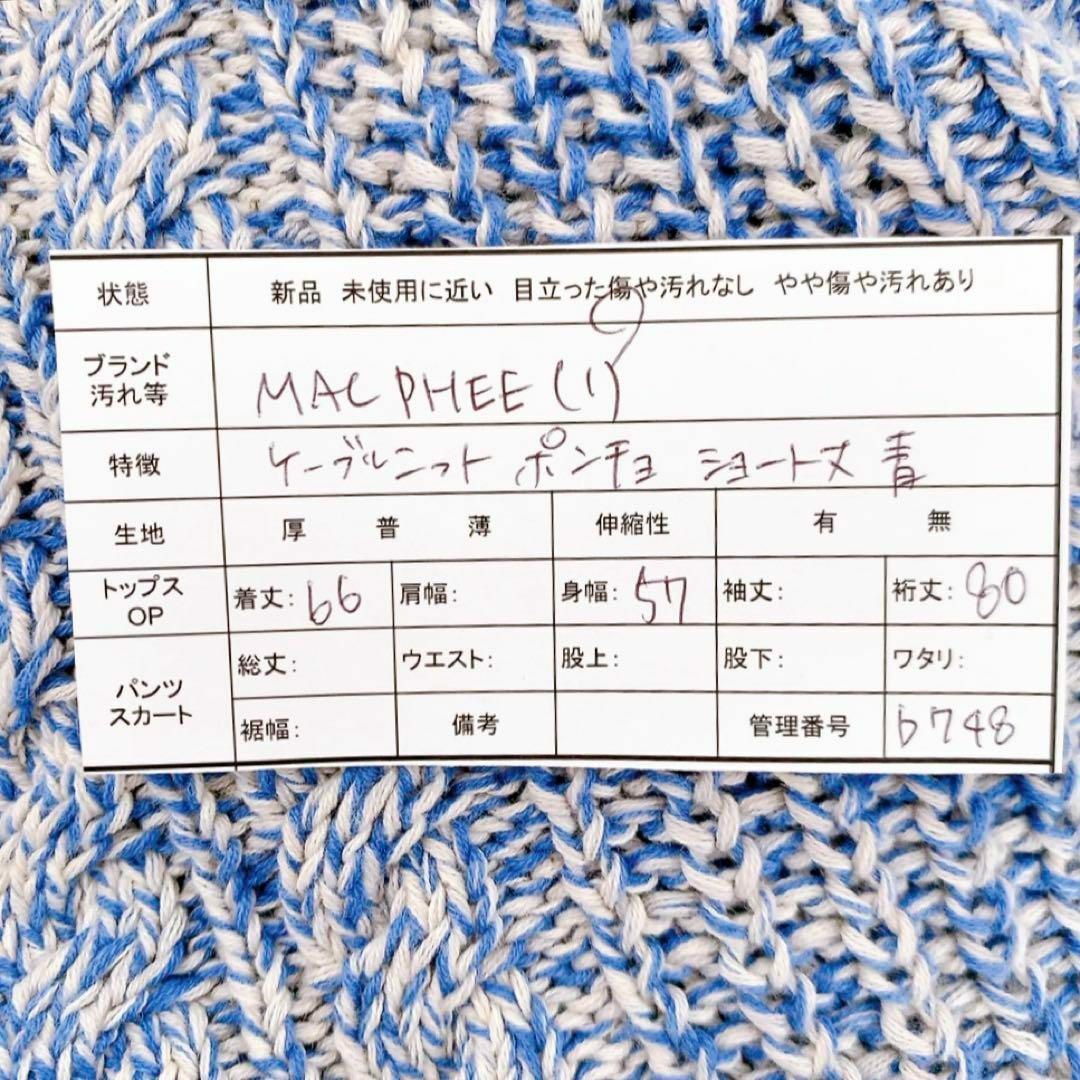 状態 新品 未使用に近い 目立った傷や汚れなし やや傷や汚れあり
ブランド
汚れ等
MAC PHEE (1)
特徴 ケーブルニット ポンチョ ショート丈 青
生地 厚 普 薄 伸縮性 有 無
トップス
OP
着丈: 66 肩幅: 身幅: 57 袖丈: 裄丈: 80
パンツ
スカート
総丈: ウエスト: 股上: 股下: ワタリ:
裾幅: 備考 管理番号 b748